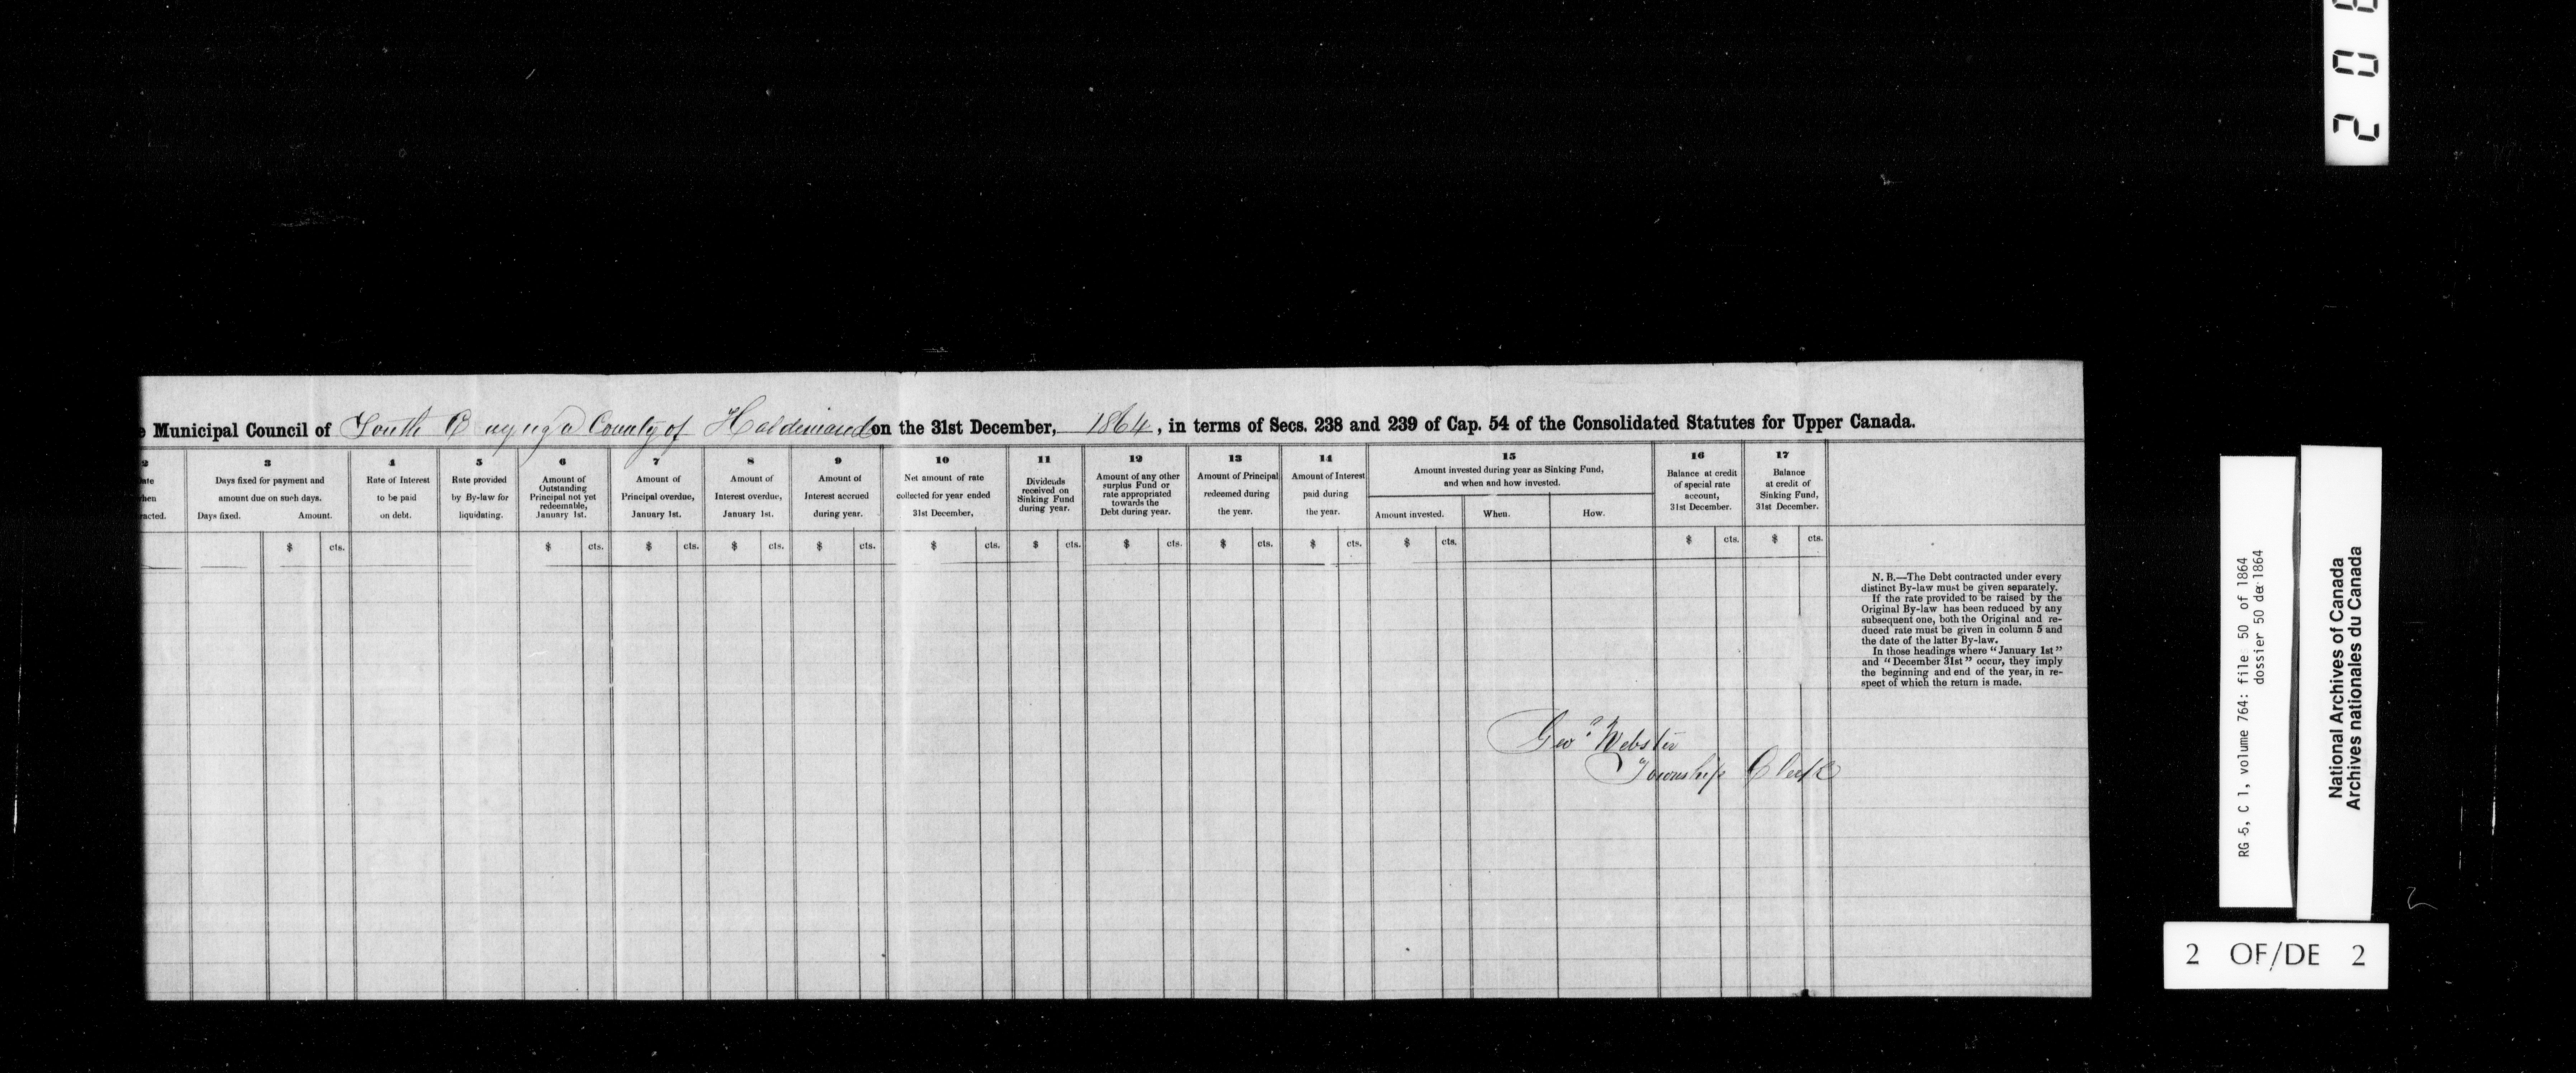 e Municipal Council of South Cayuga County of Haldimand on the 31st December, 1864, in terms of Secs. 238 and 239 of Cap. 54 of the Consolidated Statutes for Upper Canada.
2
ate
hen
racted.
3
Days fixed for payment and
amount due on such days.
Days fixed. Amount.
4
Rate of Interest
to be paid
on debt.
5
Rate provided
by By-law for
liquidating.
6
Amount of
Outstanding
Principal not yet
redeemable,
January 1st.
7
Amount of
Principal overdue,
January 1st.
8
Amount of
Interest overdue,
January 1st.
9
Amount of
Interest accrued
during year.
10
Net amount of rate
collected for year ended
31st December,
11
Dividends
received on
Sinking Fund
during year.
12
Amount of any other
surplus Fund or
rate appropriated
towards the
Debt during year.
13
Amount of Principal
redeemed during
the year.
14
Amount of Interest
paid during
the year.
15
Amount invested during year as Sinking Fund,
and when and how invested.
Amount invested. When. How.
16
Balance at credit
of special rate
account,
31st December.
17
Balance
at credit of
Sinking Fund,
31st December.
$ cts. $ cts. $ cts. $ cts. $ cts. $ cts. $ cts. $ cts. $ cts. $ cts. $ cts. $ cts. $ cts.
N. B.—The Debt contracted under every
distinct By-law must be given separately.
If the rate provided to be raised by the
Original By-law has been reduced by any
subsequent one, both the Original and re-
duced rate must be given in column 5 and
the date of the latter By-law.
In those headings where "January 1st"
and "December 31st" occur, they imply
the beginning and end of the year, in re-
spect of which the return is made.
Geo Webster
Township Clerk
RG 5, C 1, volume 764: file 50 of 1864
dossier 50 de 1864
National Archives of Canada
Archives nationales du Canada
2 OF/DE 2
2 0